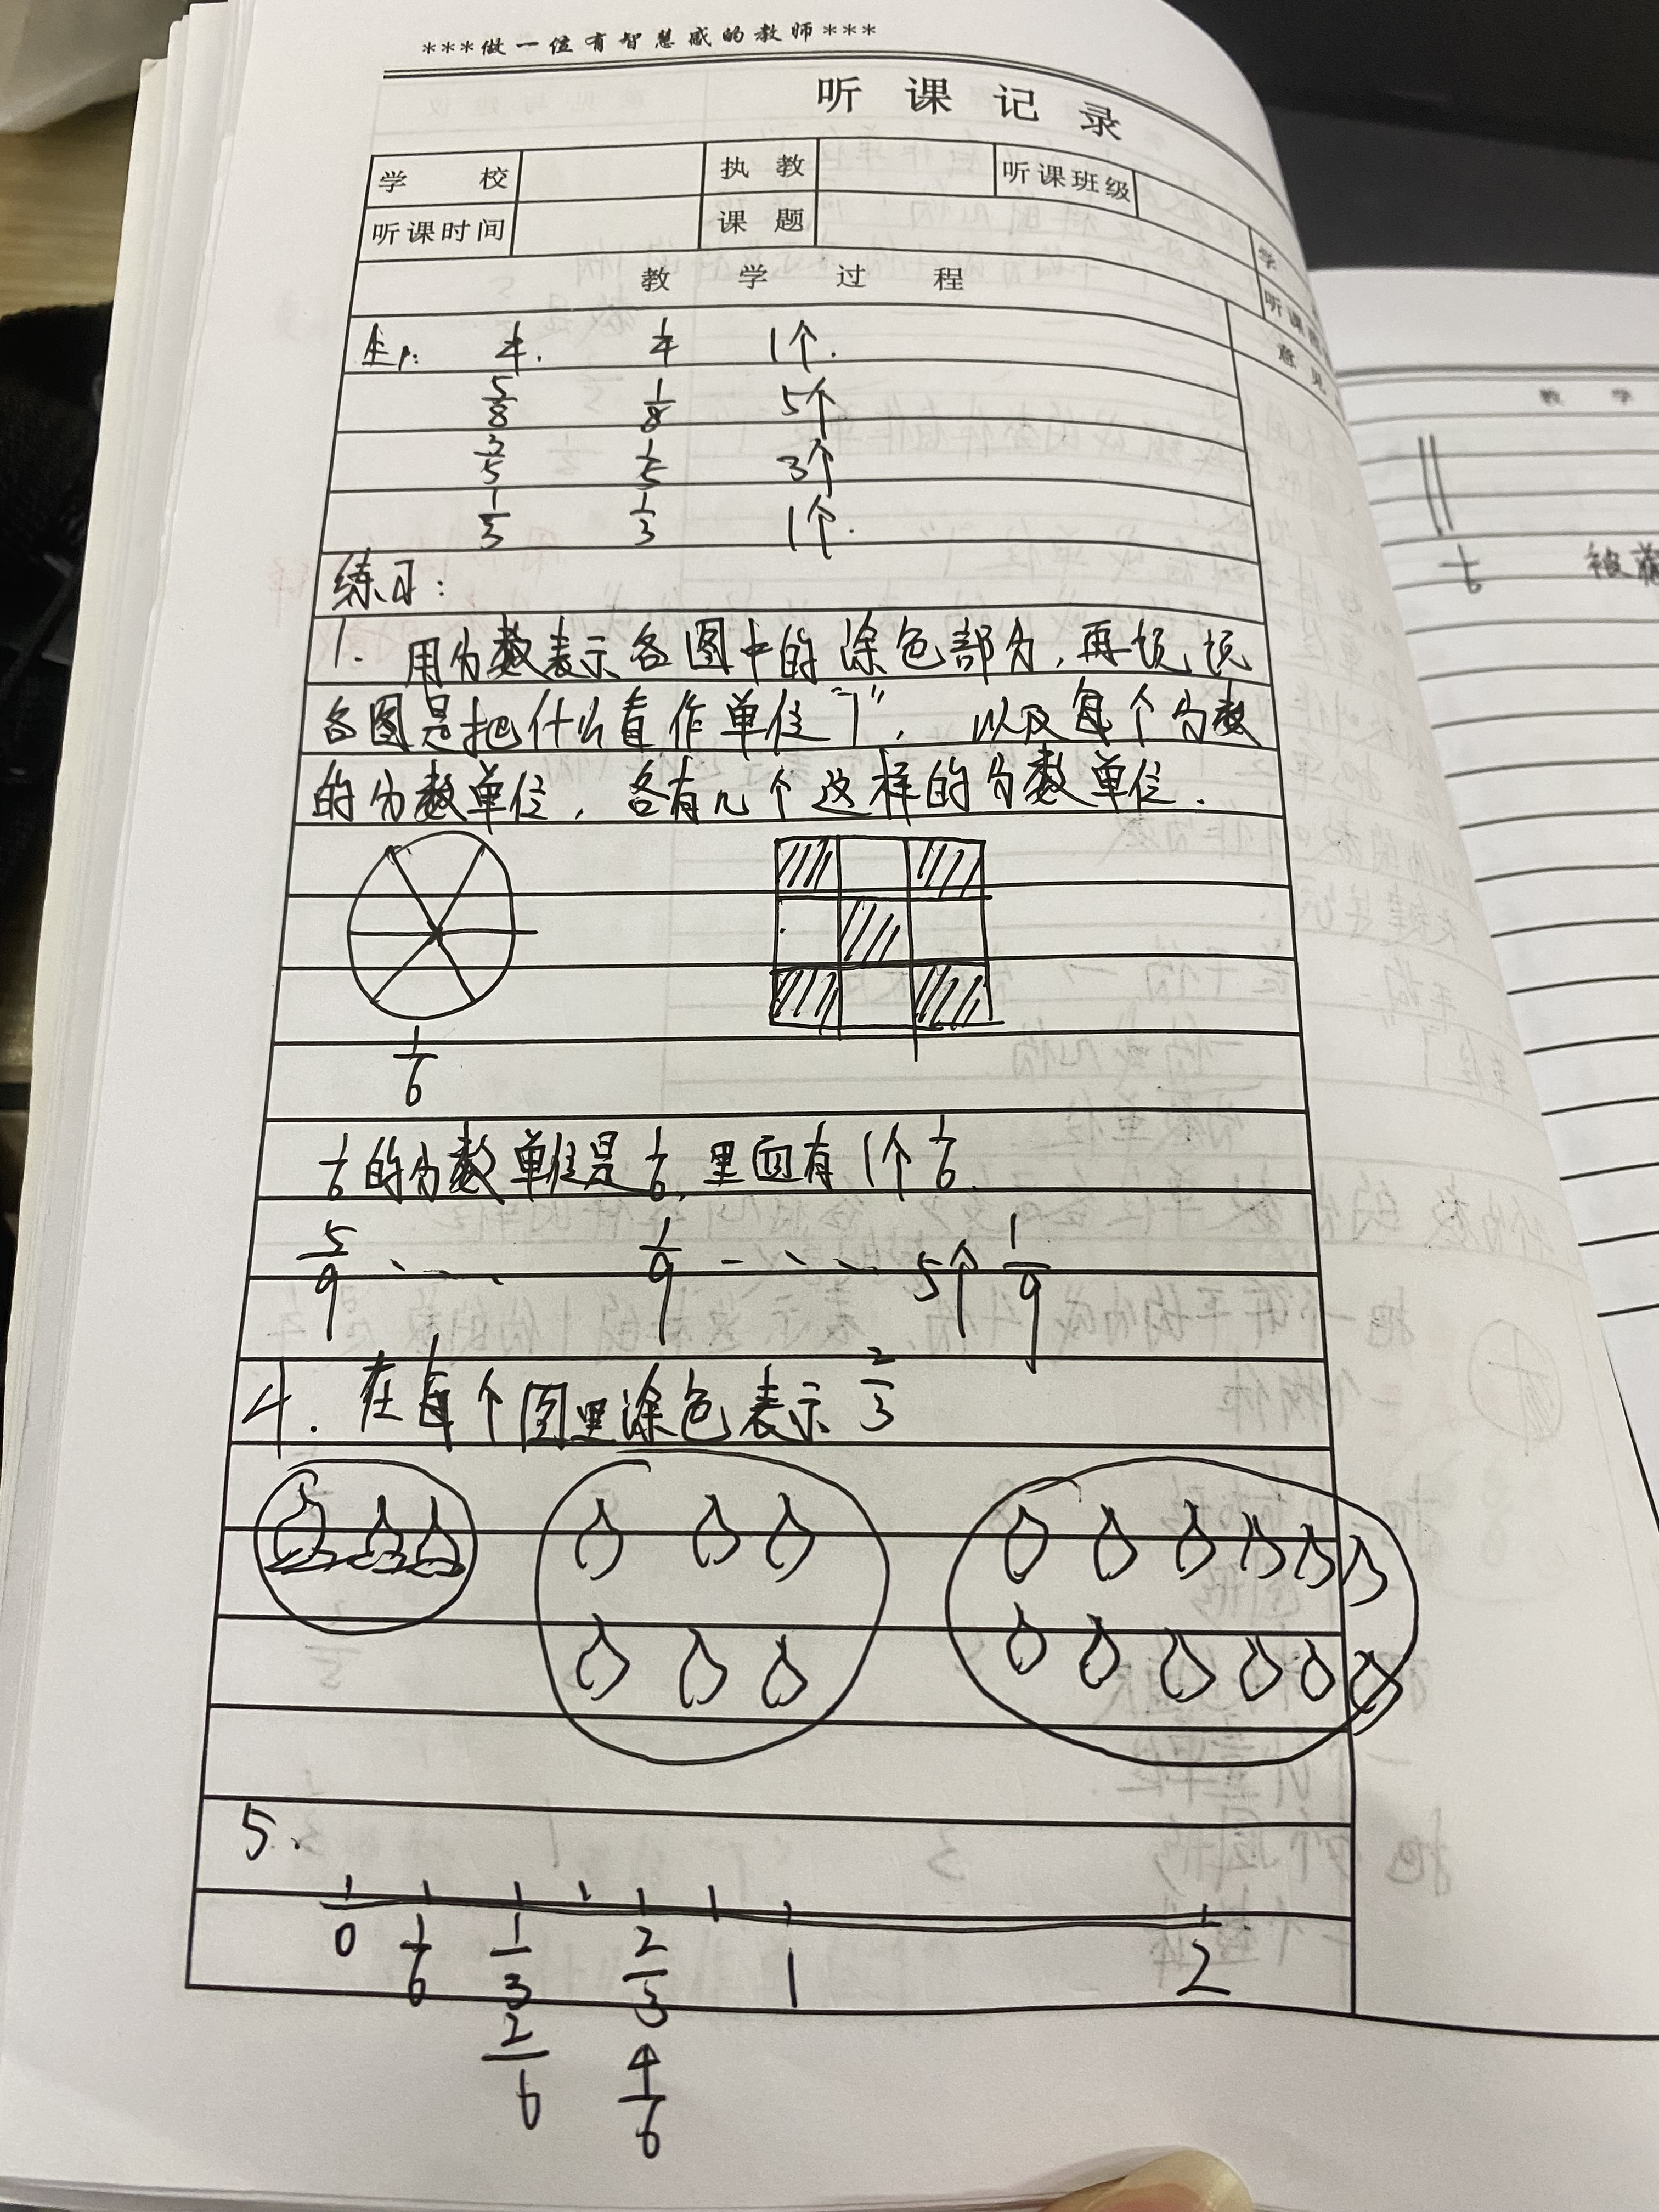 ***做一位有智慧感的教师***
听课记录
学校 执教 听课班级
听课时间 课题
教学过程
生1: 1/4. 1/4 1个.
5/8 1/8 5个
3/5 1/5 3个
1/3 1/3 1个.
练习:
1. 用分数表示各图中的涂色部分, 再说说
各图是把什么看作单位“1”, 以及每个分数
的分数单位, 各有几个这样的分数单位.
1/6
1/6的分数单位是1/6, 里面有1个1/6.
5/9 .... 1/9 .... 5个1/9
4. 在每个图里涂色表示2/3
5.
0 1/6 1/3 2/3 1 2
2/6 4/6
学
听课
意见
教 学
1/6 被